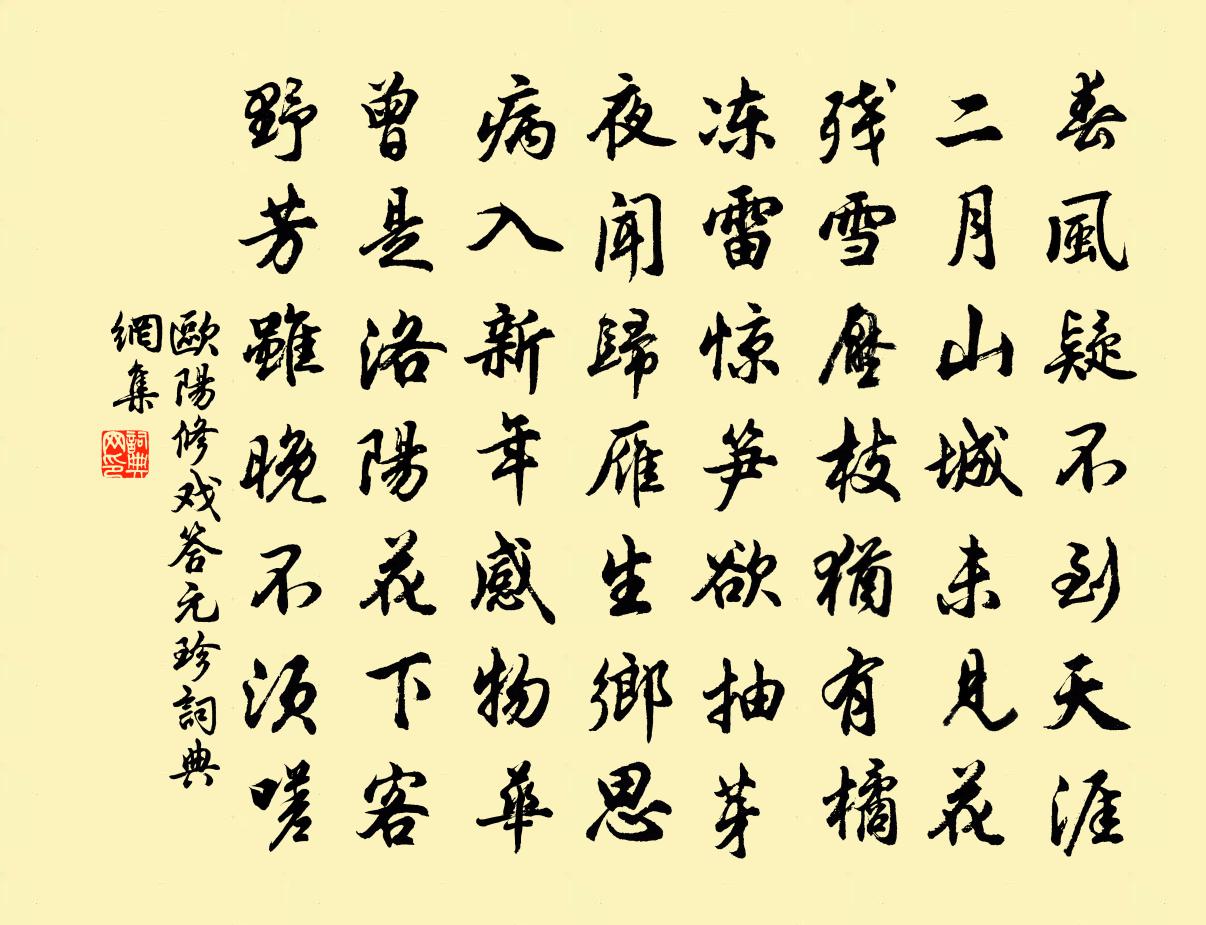 春風疑不到天涯
二月山城未見花
残雪壓枝猶有橘
冻雷惊笋欲抽芽
夜聞歸雁生鄉思
病入新年感物華
曾是洛陽花下客
野芳雖晚不須嗟
歐陽修戏答元珍詞典
網集
詞典
网印